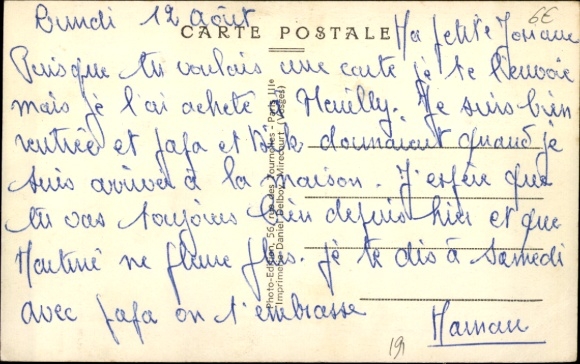 Lundi 12 Août
6€
CARTE POSTALE
Ma petite
Puisque tu voulais une carte je te l'envoie
mais je l'ai acheté à Neuilly. Je suis bien
rentrée et papa et dormaient quand je
suis arrivée à la maison. J'espère que
tu vas toujours bien depuis hier et que
Martine ne pleure plus. je te dis à Samedi
avec papa on t'embrasse
Maman
19
Photo-Edition, 56, rue des Tournelles - Paris IIIe
(Imprimerie Daniel Delboy, Mirecourt - Vosges)